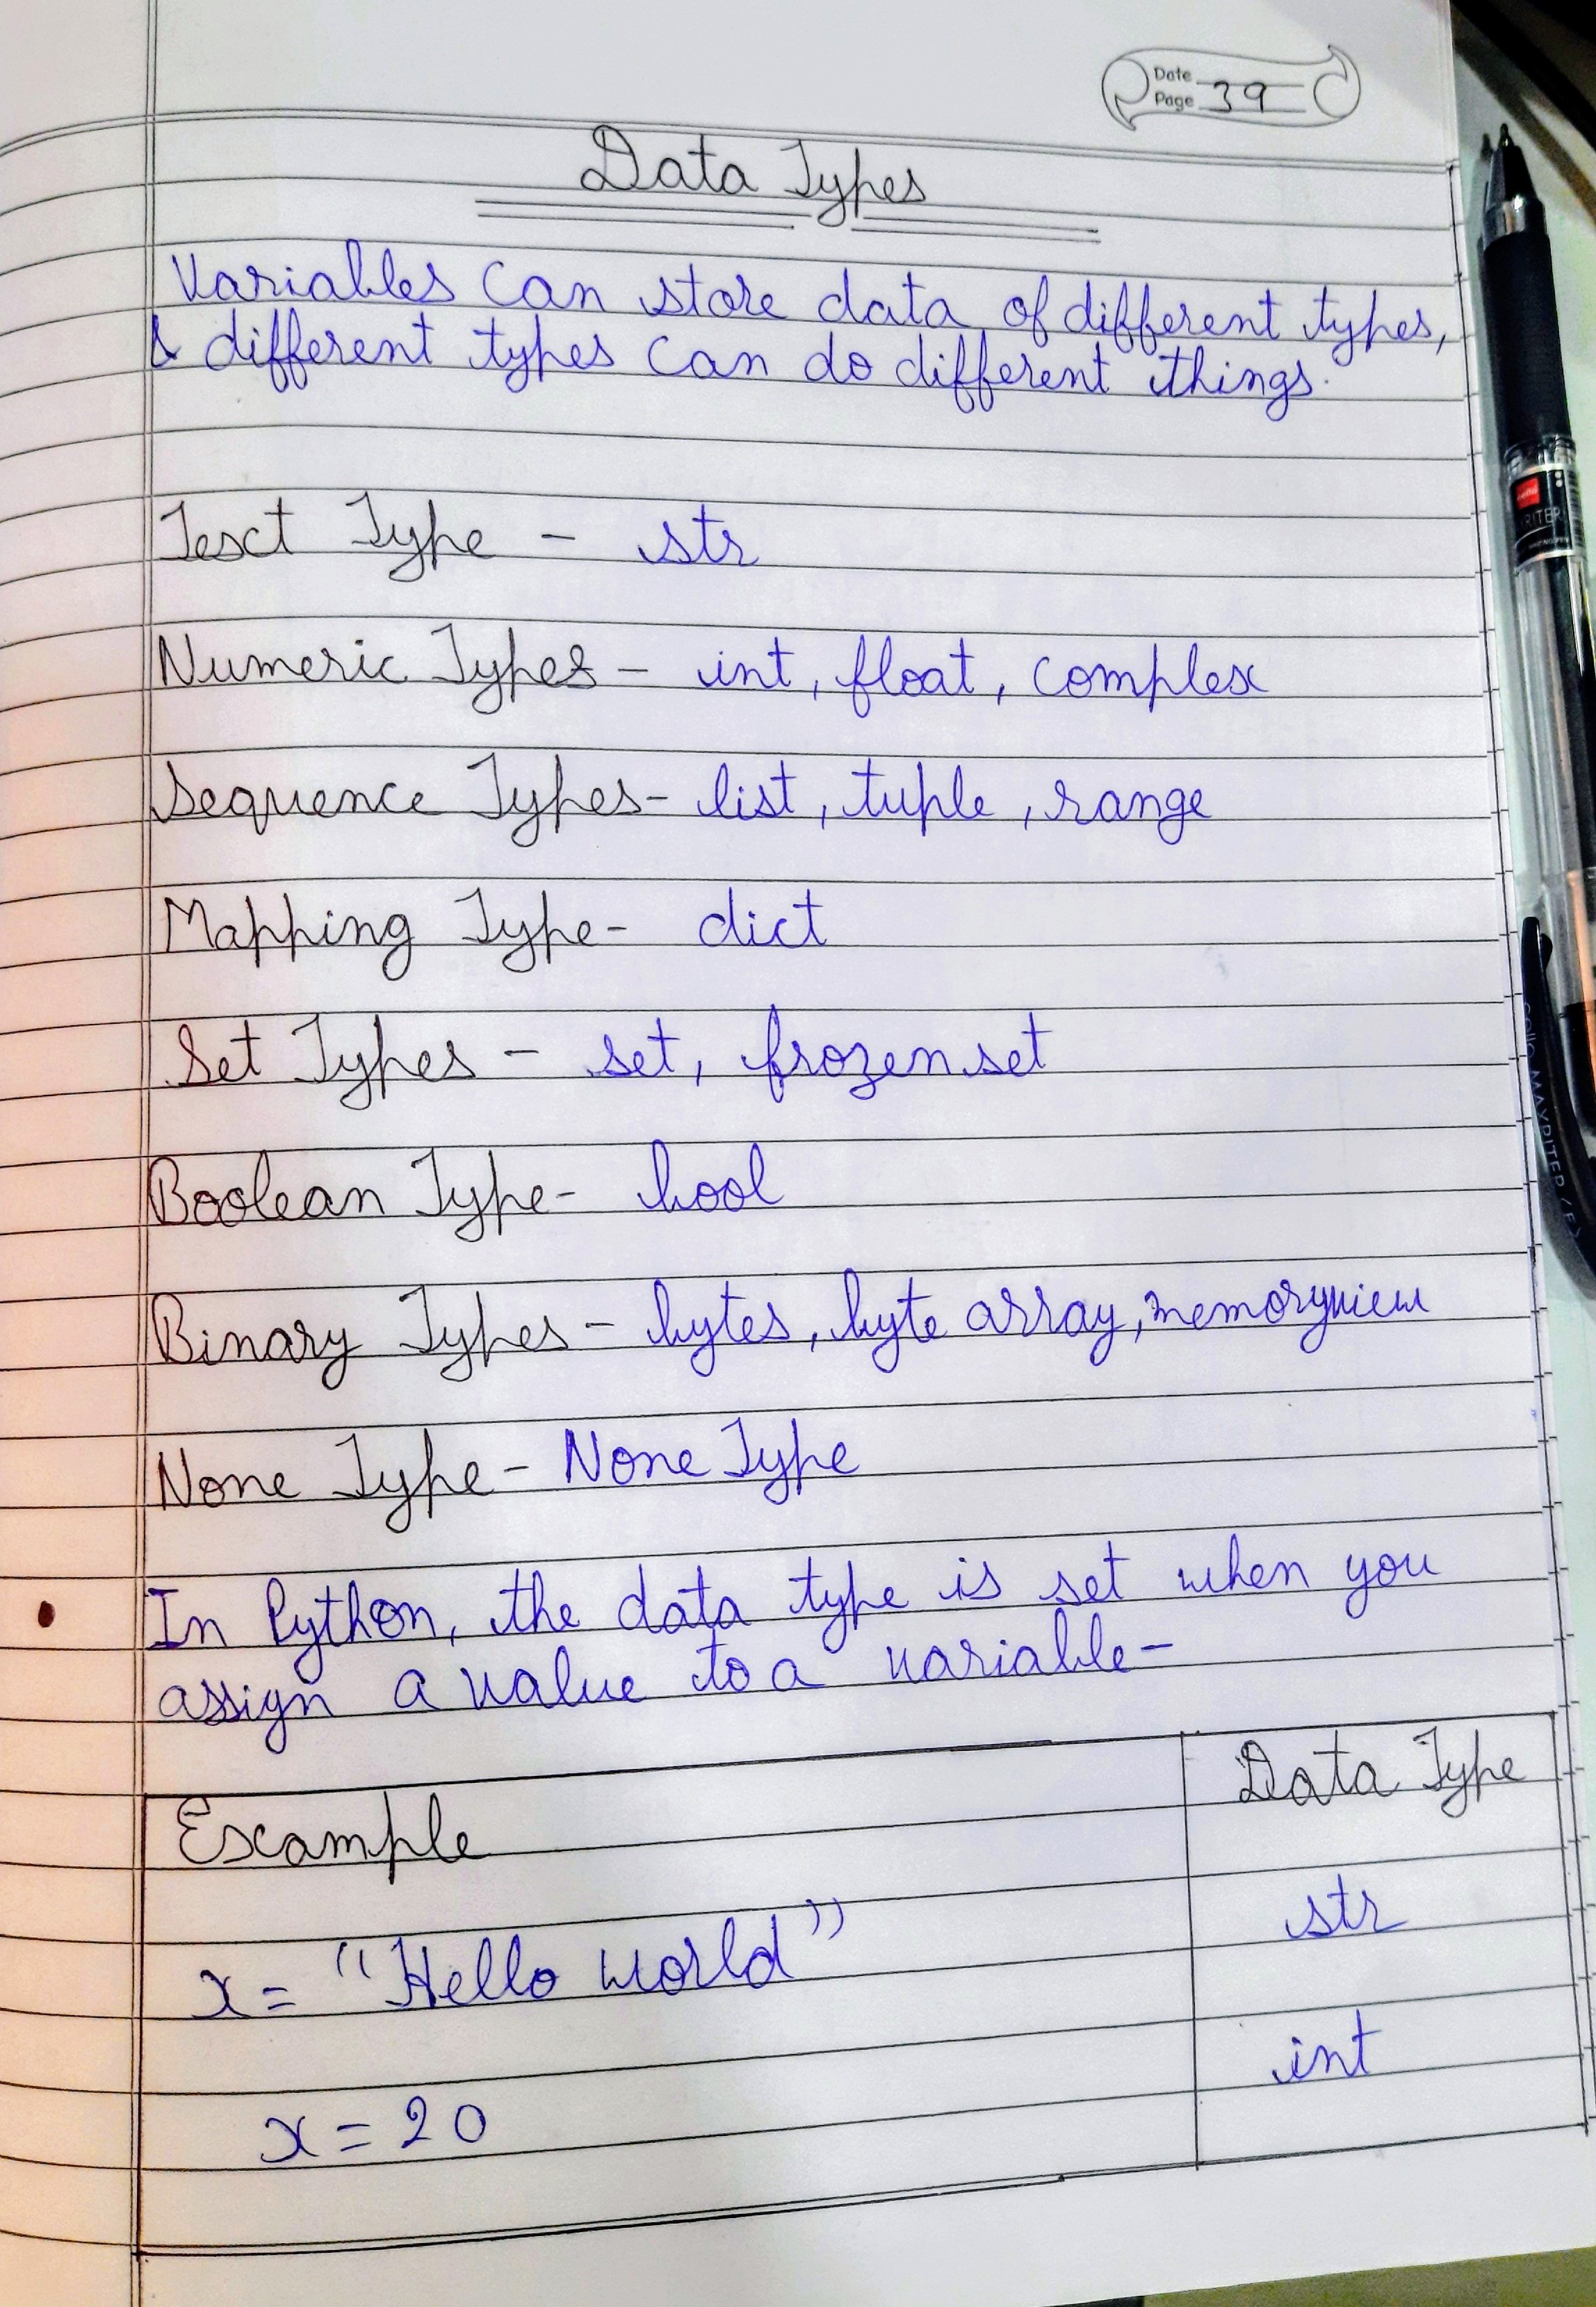 Date
Page 39
Data Types
Variables can store data of different types,
& different types can do different things.
Text Type - str
Numeric Types - int, float, complex
Sequence Types- list, tuple, range
Mapping Type- dict
Set Types - set, frozenset
Boolean Type- bool
Binary Types - bytes, byte array, memoryview
None Type - None Type
• In Python, the data type is set when you
assign a value to a variable-
Example Data Type
x = "Hello world" str
x = 20 int